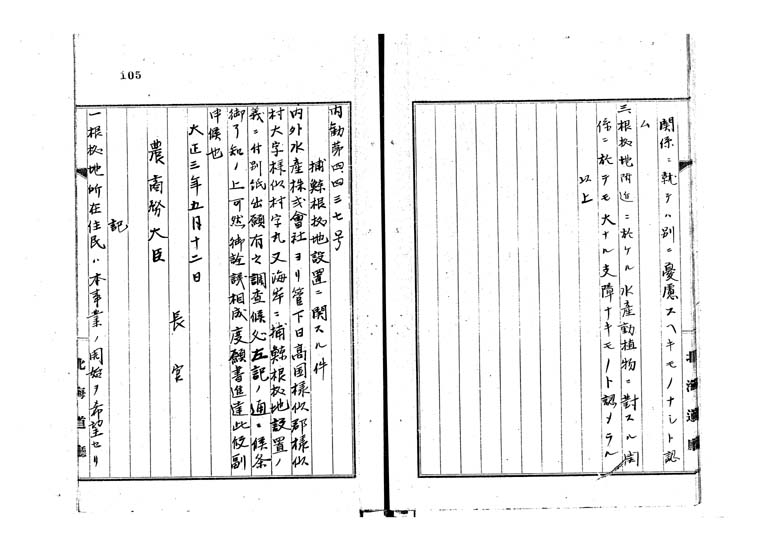 関係ニ就テハ別ニ憂慮スヘキモノナシト認
ム
三、根拠地附近ニ於ケル水産動植物ニ對スル関
係ニ於テモ大ナル支障ナキモノト認メラル
以上
北海道廳
105
内勧第四四三七号
捕鯨根拠地設置ニ関スル件
内外水産株式會社ヨリ管下日高国様似郡様似
村大字様似村字丸又海岸ニ捕鯨根拠地設置ノ
義ニ付別紙出願有之調査候処左記ノ通ニ候条
御了知ノ上可然御詮議相成度願書進達此段副
申候也
大正三年五月十二日
長官
農商務大臣
記
一根拠地所在住民ハ本事業ノ開始ヲ希望セリ
北海道廳